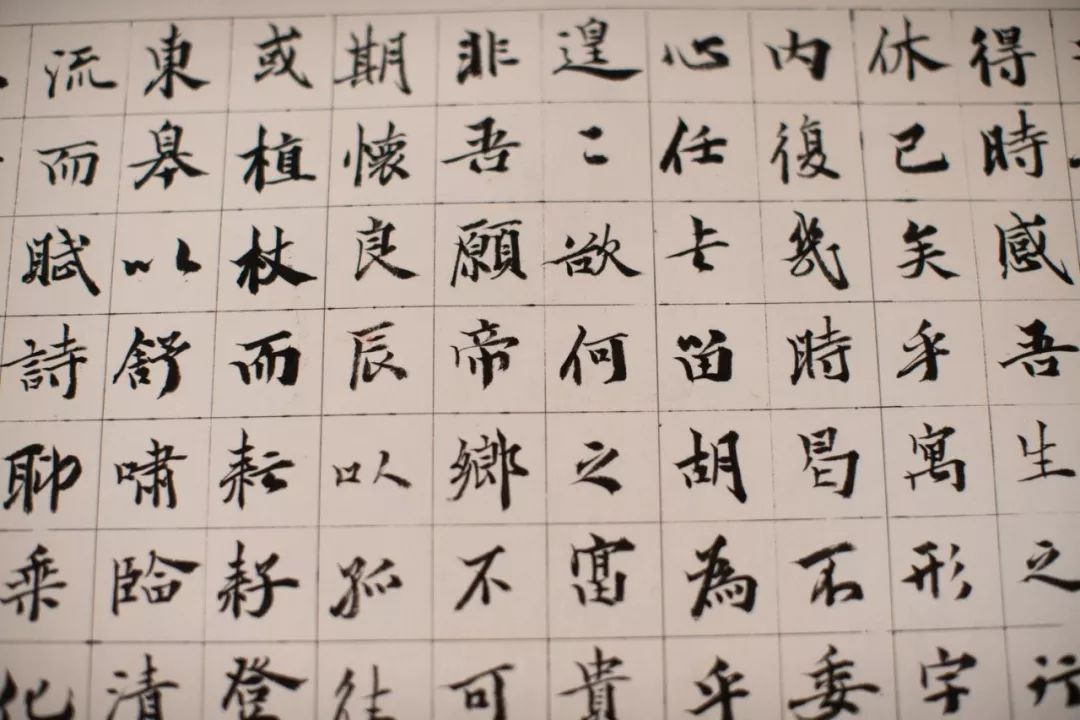 得時感吾生之行
休已矣乎寓形宇
內復幾時曷不委
心任去留胡為乎
遑〻欲何之富貴
非吾願帝鄉不可
期懷良辰以孤往
或植杖而耘耔登
東皋以舒嘯臨清
流而賦詩聊乘化